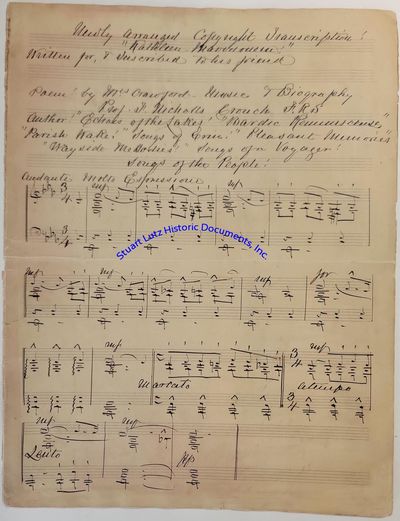 Newly Arranged Copyright Transcription!
"Kathleen Mavourneen!"
Written for, & Inscribed to his friend
Poem! by Mrs Crawford Music & Biography
Prof. F. Nicholls Crouch F.R.S
Author! "Echoes of the Lakes! "Bardic Reminiscenses"
"Parish Wake!" Songs of Erin!" Pleasant Memories"
"Wayside Melodies!" Songs of a Voyager!
Songs of the People!
Andante Molto Espressione
3 4
mp
mp
3 4
Stuart Lutz Historic Documents, Inc.
mp
mp
mp
for
mp
Marcato
mp
3 4
atempo
3 4
Lento
mp
pp